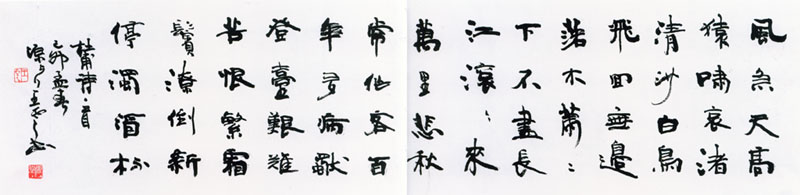 風急天高
猿嘯哀渚
清沙白鳥
飛回無邊
落木蕭〻
下不盡長
江滾〻來
萬里悲秋
常作客百
年多病獨
登臺艱難
苦恨繁霜
鬢潦倒新
停濁酒杯
杜甫詩一首